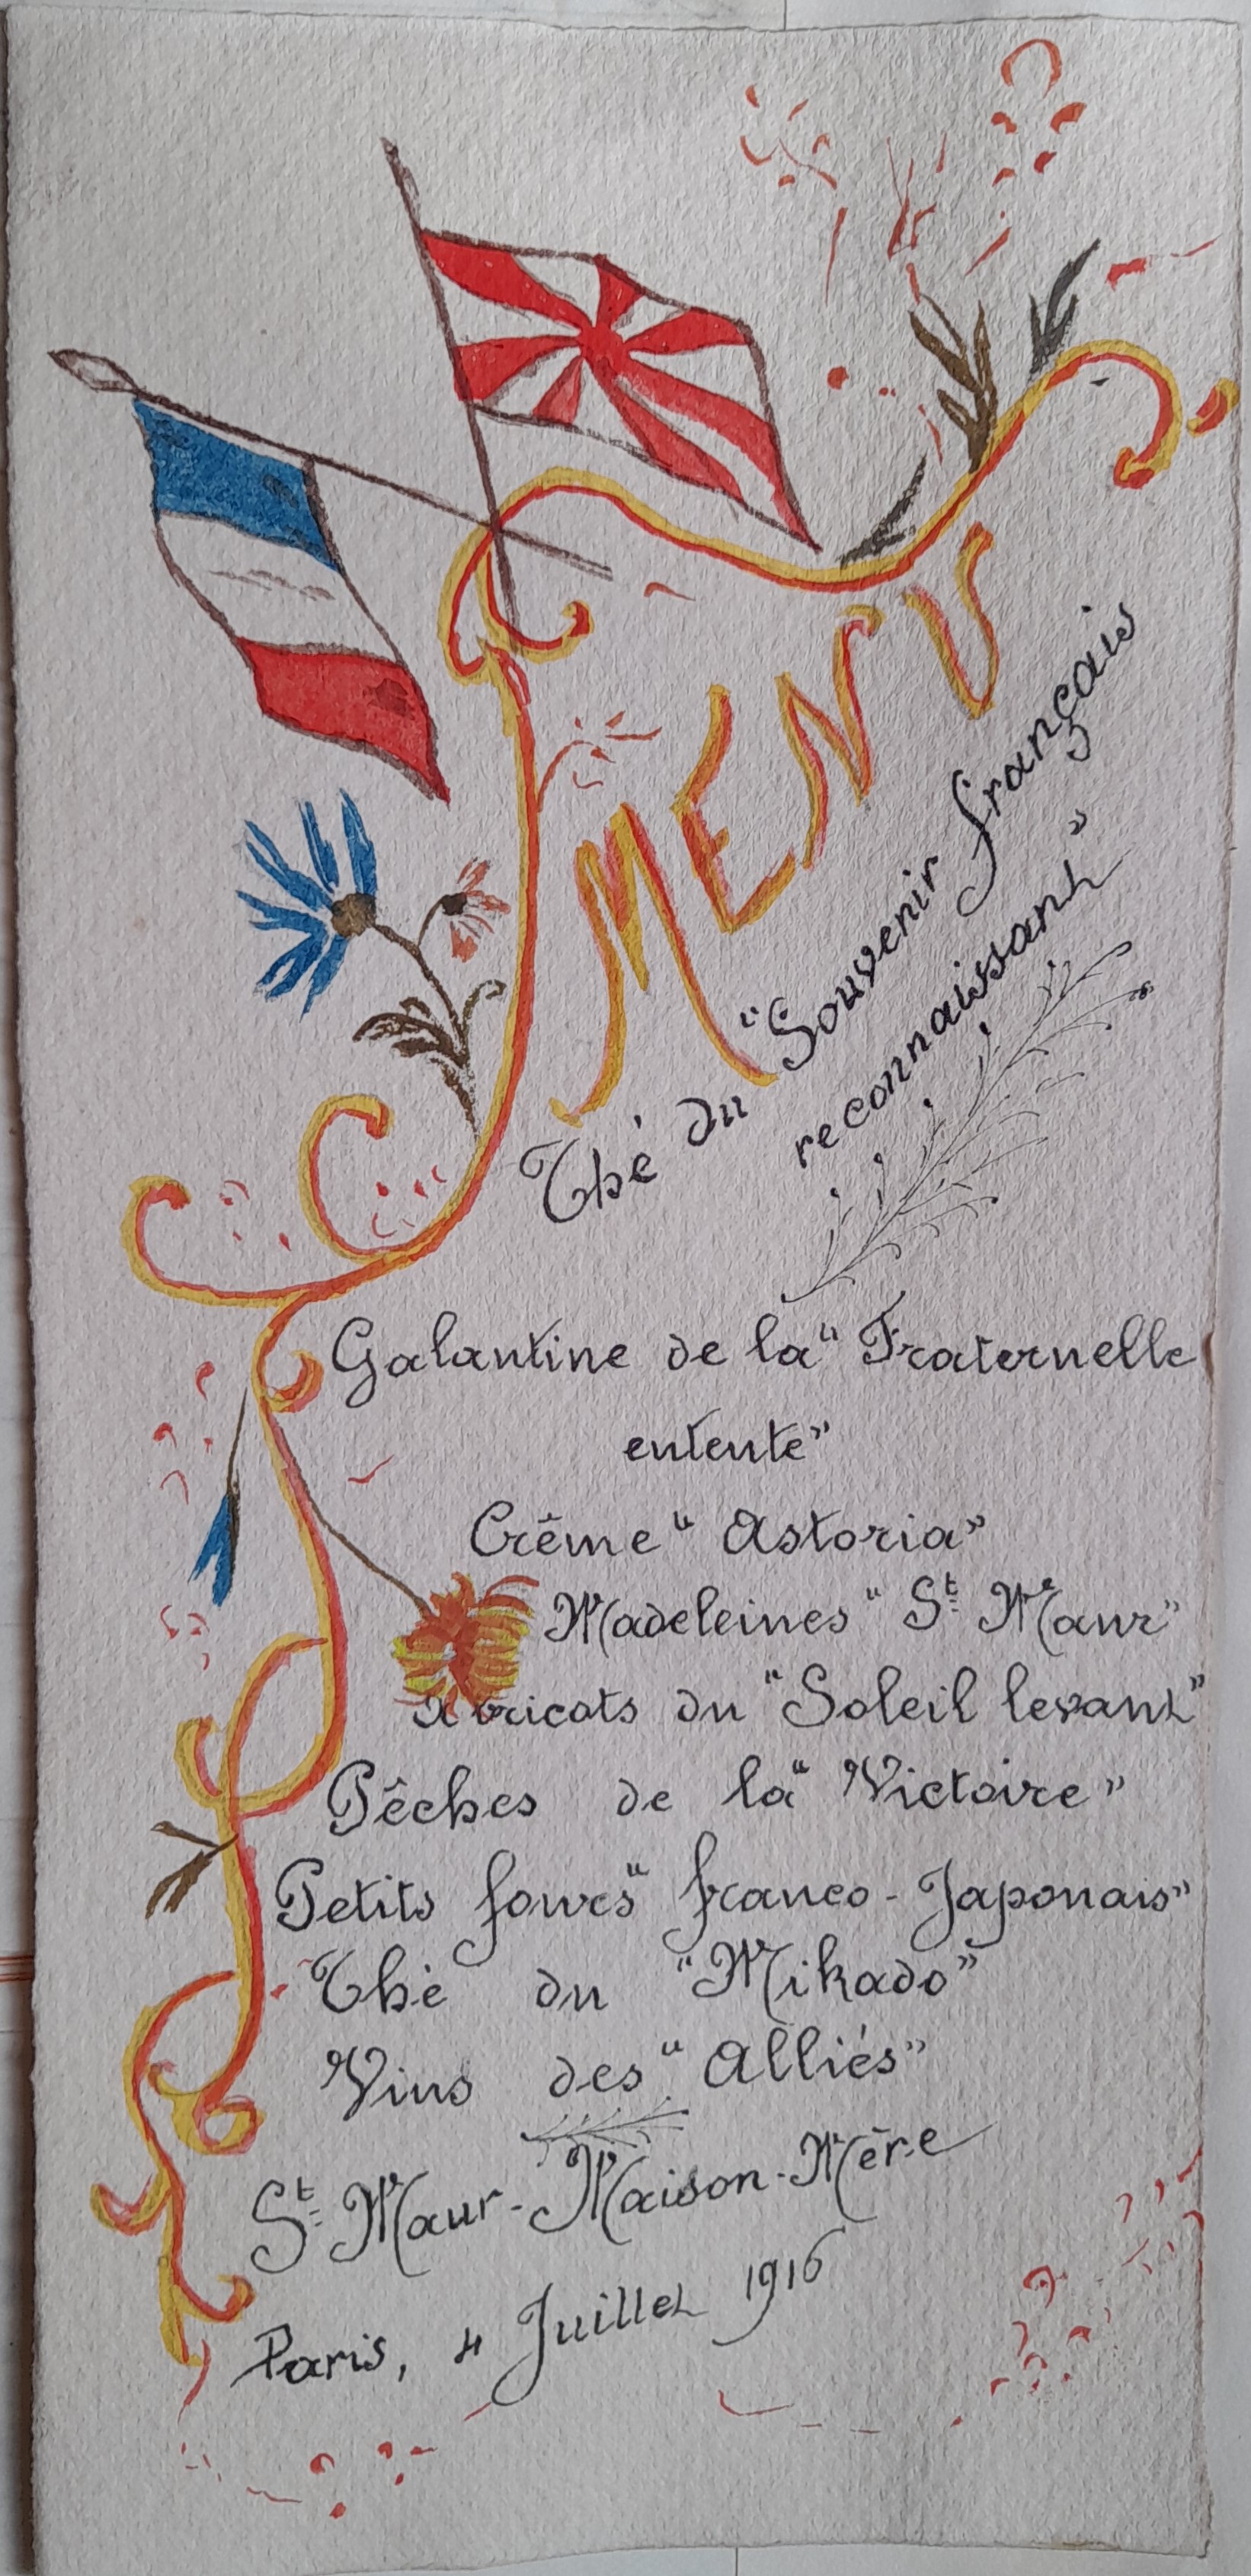 MENU
Thé du "Souvenir français
reconnaissant"
Galantine de la "Fraternelle
entente"
Crême "Astoria"
Madeleines "St Maur"
Abricots du "Soleil levant"
Pêches de la "Victoire"
Petits fours "franco-Japonais"
Thé du "Mikado"
Vins des "Alliés"
St Maur-Maison-Mère
Paris, 4 Juillet 1916